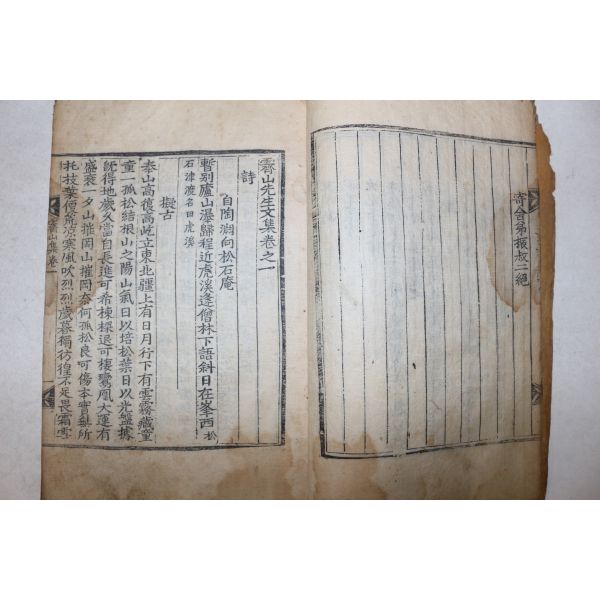 寄舍弟振叔二絶
霽山先生文集卷之一
詩
自陶澗向松石庵
暫別廬山瀑歸程近虎溪逢僧林下語斜日在峯西松
石津渡名曰虎溪
擬古
泰山高復高屹立東北疆上有日月行下有雲霧藏童
童一孤松結根山之陽山氣日以培松葉日以光盤據
旣得地歲久當自長進可希棟樑退可棲鸞凰大運有
盛衰一夕山摧岡山摧岡奈何孤松良可傷本實無所
托枝葉便荒凉寒風吹烈烈歲暮獨彷徨不足畏霜雪
霽山集卷一